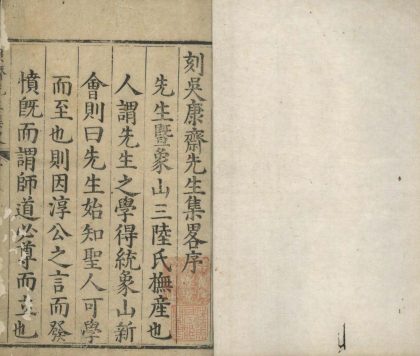 刻吳康齋先生集畧序
先生暨象山三陸氏撫産也
人謂先生之學得統象山新
會則曰先生始知聖人可學
而至也則因淳公之言而發
憤旣而謂師道必尊而立也